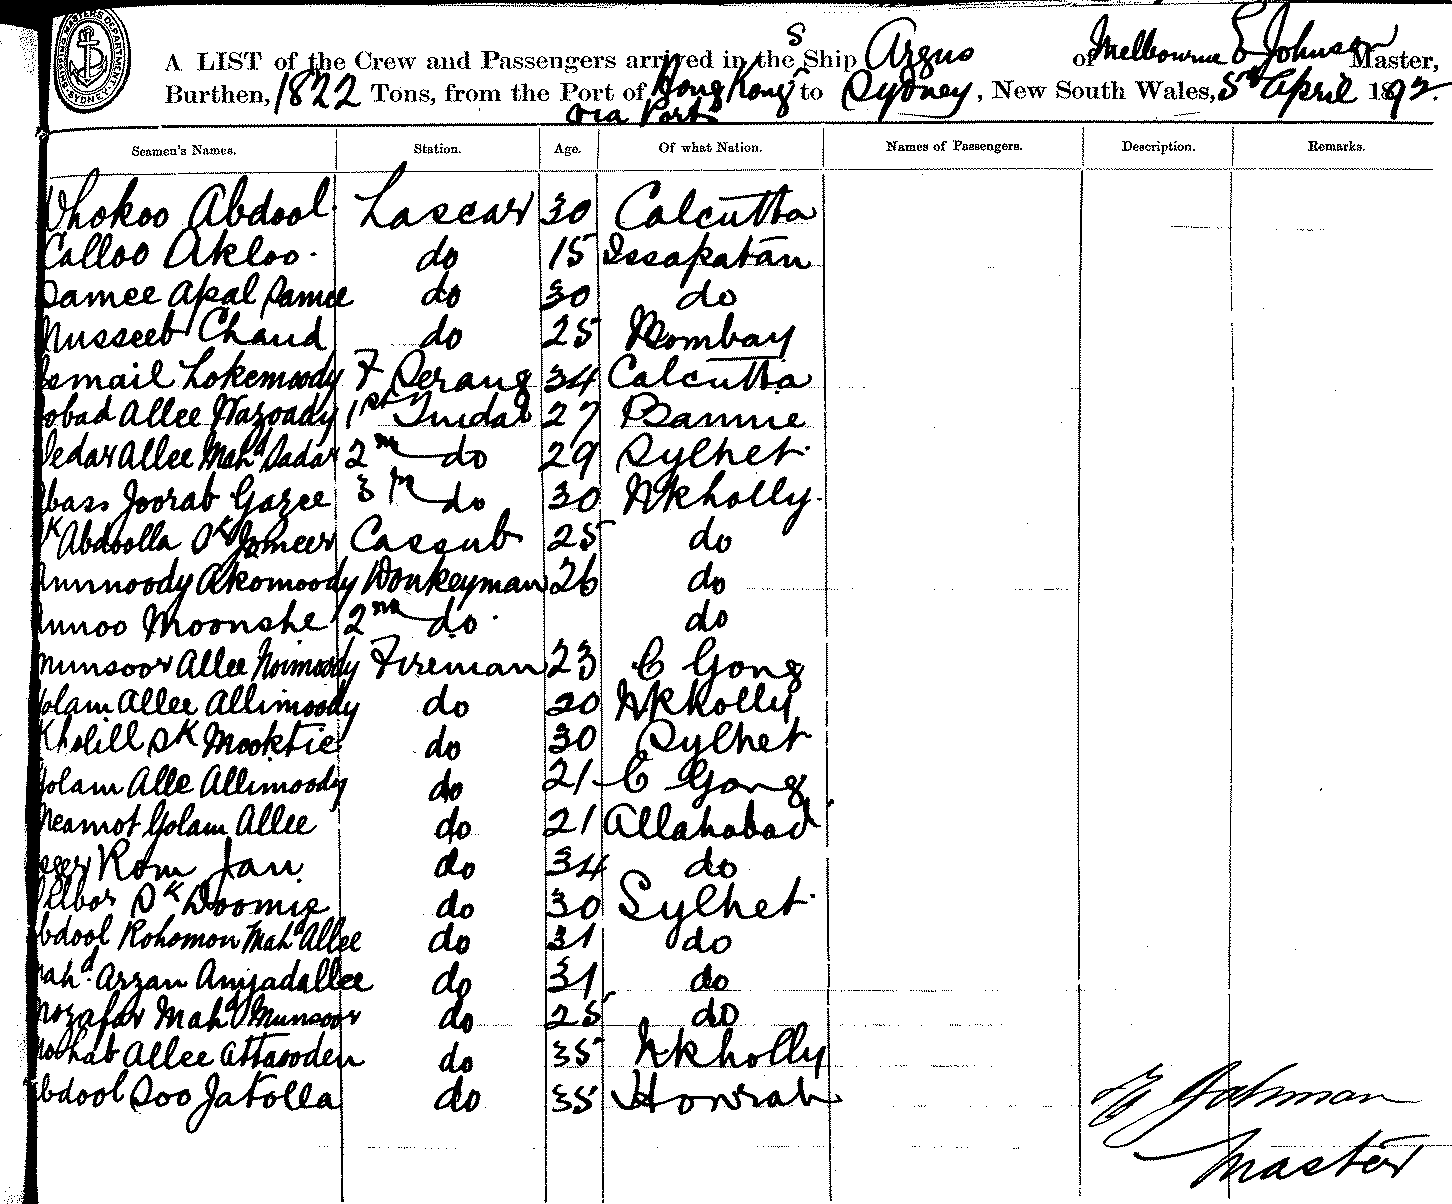 A LIST of the Crew and Passengers arrived in the S Ship Argus of Melbourne E Johnson Master,
Burthen, 1822 Tons, from the Port of Hong Kong to Sydney, New South Wales, 5th April 1892.
via Ports
Seamen's Names. Station. Age. Of what Nation. Names of Passengers. Description. Remarks.
Abdool Lascar 30 Calcutta
Calloo Akloo. do 15 Issapatan
Samee Apal Samee do 30 do
Nusseeb Chand do 25 Bombay
Ismail Lokemoody F Serang 34 Calcutta
Allee Wazoady 1st Tindal 27
Allee Mahd Sadar 2nd do 29 Sylhet
Joorab Gazee 3rd do 30 Nkholly
Sk Abdoolla Sk Jomeer Cassub 25 do
Akomoody Donkeyman 26 do
Moonshe 2nd do do
Munsoor Allee Noimoody Fireman 23 C Gong
Golam Allee Allimoody do 20 Nkholly
Kholill Sk Mooktie do 30 Sylhet
Golam Alle Allimoody do 21 C Gong
Neamot Golam Allee do 21 Allahabad
Rom Jan do 34 do
Sk Doomie do 30 Sylhet
Abdool Rohomon Mahd Allee do 31 do
Mahd. Arzan Amjadallee do 31 do
Mozafar Mahd Munsoor do 25 do
Allee Attasoden do 35 Nkholly
Abdool Soo Jatolla do 35 Howrah
E Johnson
Master